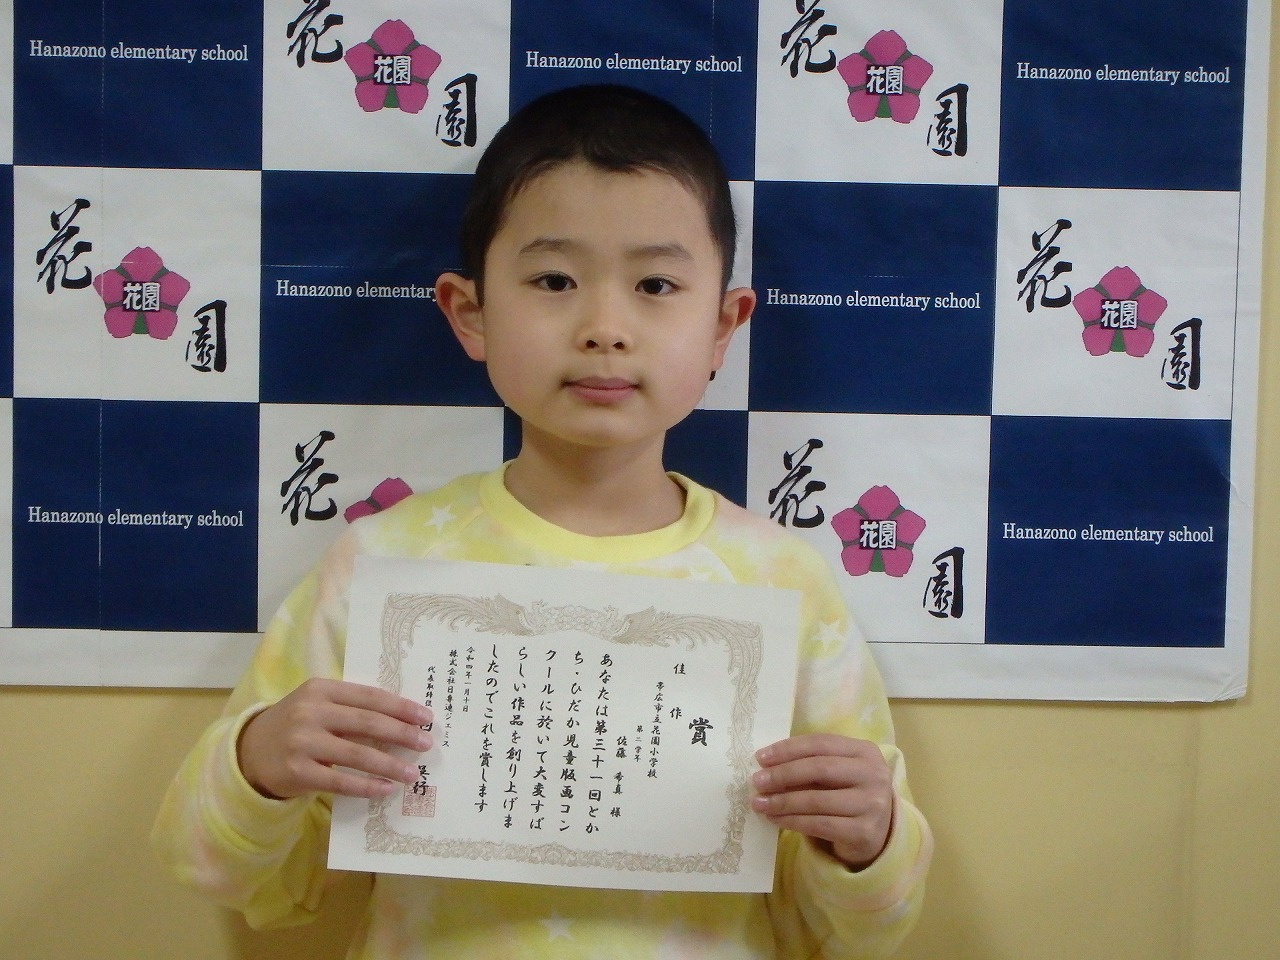 Hanazono elementary school
花
花園
園
Hanazono elementary school
花
花園
園
Hanazono elementary school
花
花園
園
Hanazono elementary
Hanazono elementary school
花
花園
園
Hanazono elementary school
花
花
花園
園
Hanazono elementary school
賞
佳作
帯広市立花園小学校
第二学年
佐藤 希真 様
あなたは第三十一回とか
ち・ひだか児童版画コン
クールに於いて大変すば
らしい作品を創り上げま
したのでこれを賞します
令和四年一月十日
株式会社日専連ジェミス
代表取締役